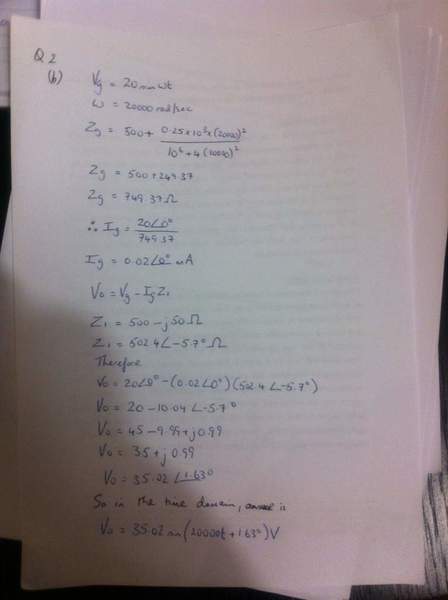 Q2
(b) Vg = 20 sin wt
ω = 20000 rad/sec
Zg = 500 + 0.25×10⁶×(20000)² / 10⁶+4(20000)²
Zg = 500 + 249.37
Zg = 749.37 Ω
∴ Ig = 20∠0° / 749.37
Ig = 0.02∠0° A
Vo = Vg - IgZ1
Z1 = 500 - j50 Ω
Z1 = 502.4∠-5.7° Ω
Therefore
Vo = 20∠0° - (0.02∠0°)(502.4∠-5.7°)
Vo = 20 - 10.04∠-5.7°
Vo = 45 - 9.99 + j0.99
Vo = 35 + j0.99
Vo = 35.02∠1.63°
So in the time domain, is
Vo = 35.02 sin(20000t + 1.63°)V